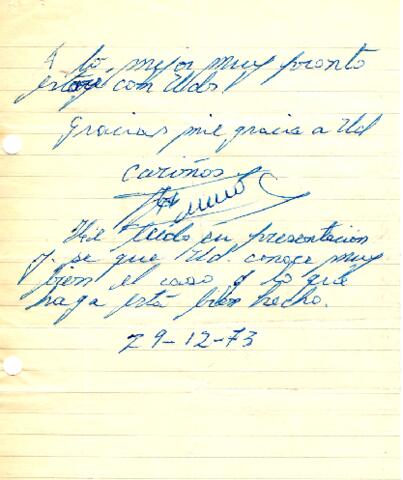 A lo mejor muy pronto
estaré con Uds.
Gracias mil gracia a Ud
cariños
He leido su presentacion
y se que Ud conoce muy
bien el caso y lo que
haga está bien hecho.
29-12-73